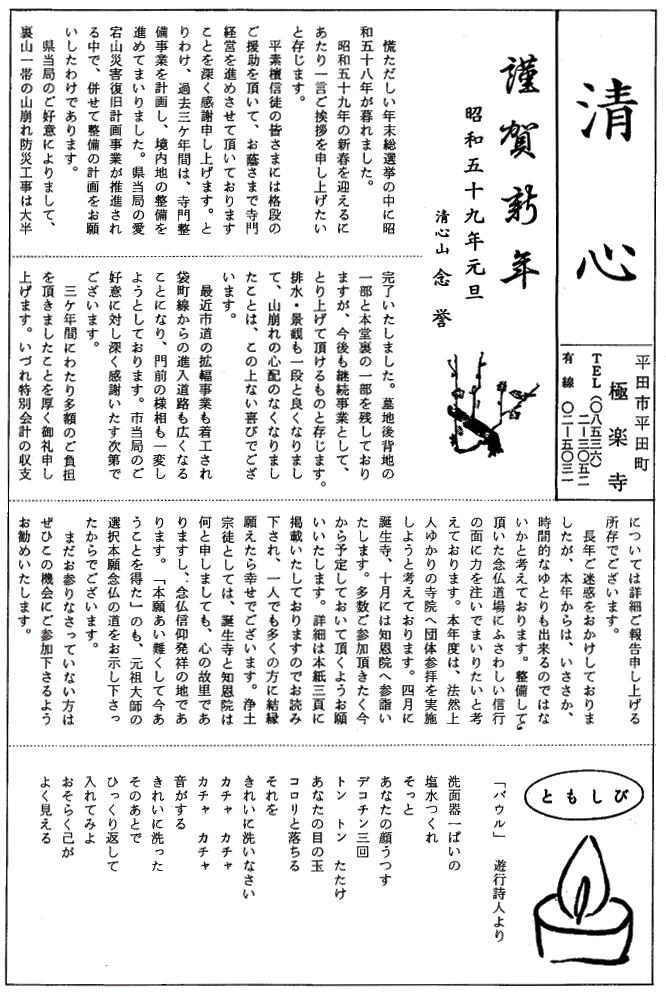 清心
平田市平田町
極楽寺
TEL(〇八五三六)
二―三〇五二
有線 〇二―五〇三一
謹賀新年
昭和五十九年元旦
清心山 念誉
慌ただしい年末総選挙の中に昭
和五十八年が暮れました。
昭和五十九年の新春を迎えるに
あたり一言ご挨拶を申し上げたい
と存じます。
平素檀信徒の皆さまには格段の
ご援助を頂いて、お蔭さまで寺門
経営を進めさせて頂いております
ことを深く感謝申し上げます。と
りわけ、過去三ケ年間は、寺門整
備事業を計画し、境内地の整備を
進めてまいりました。県当局の愛
宕山災害復旧計画事業が推進され
る中で、併せて整備の計画をお願
いしたわけであります。
県当局のご好意によりまして、
裏山一帯の山崩れ防災工事は大半
完了いたしました。墓地後背地の
一部と本堂裏の一部を残しており
ますが、今後も継続事業として、
とり上げて頂けるものと存じます。
排水・景観も一段と良くなりまし
て、山崩れの心配のなくなりまし
たことは、この上ない喜びでござ
います。
最近市道の拡幅事業も着工され
袋町線からの進入道路も広くなる
ことになり、門前の様相も一変し
ようとしております。市当局のご
好意に対し深く感謝いたす次第で
ございます。
三ケ年間にわたり多額のご負担
を頂きましたことを厚く御礼申し
上げます。いづれ特別会計の収支
については詳細ご報告申し上げる
所存でございます。
長年ご迷惑をおかけしておりま
したが、本年からは、いささか、
時間的なゆとりも出来るのではな
いかと考えております。整備して
頂いた念仏道場にふさわしい信行
の面に力を注いでまいりたいと考
えております。本年度は、法然上
人ゆかりの寺院へ団体参拝を実施
しようと考えております。四月に
誕生寺、十月には知恩院へ参詣い
たします。多数ご参加頂きたく今
から予定しておいて頂くようお願
いいたします。詳細は本紙三頁に
掲載いたしておりますのでお読み
下され、一人でも多くの方に結縁
願えたら幸せでございます。浄土
宗徒としては、誕生寺と知恩院は
何と申しましても、心の故里であ
りますし、念仏信仰発祥の地であ
ります。「本願あい難くして今あ
うことを得た」のも、元祖大師の
選択本願念仏の道をお示し下さっ
たからでございます。
まだお参りなさっていない方は
ぜひこの機会にご参加下さるよう
お勧めいたします。
ともしび
「バウル」 遊行詩人より
洗面器一ぱいの
塩水つくれ
そっと
あなたの顔うつす
デコチン三回
トン トン たたけ
あなたの目の玉
コロリと落ちる
それを
きれいに洗いなさい
カチャ カチャ
カチャ カチャ
音がする
きれいに洗った
そのあとで
ひっくり返して
入れてみよ
おそらく己が
よく見える